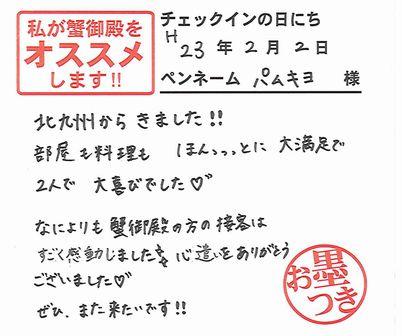 私が蟹御殿を
オススメ
します!!
チェックインの日にち
H23年2月2日
ペンネーム パムキヨ 様
北九州からきました!!
部屋も料理も ほんっっっとに 大満足で
2人で 大喜びでした♡
なによりも 蟹御殿の方の接客は
すごく感動しました 心遣いをありがとう
ございました♡
ぜひ、また来たいです!!
お墨つき